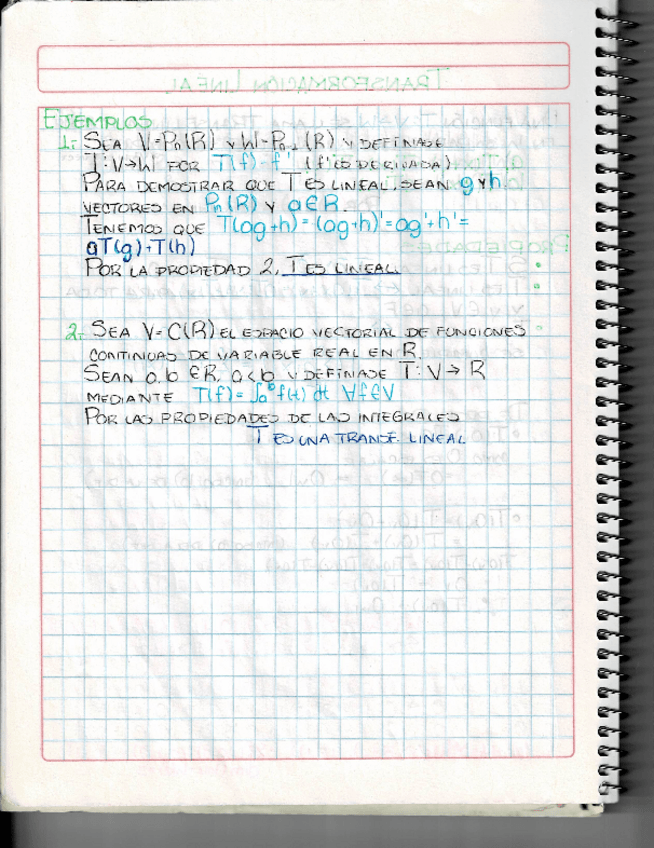 EJEMPLOS
1: SEA V=Pn(R) Y W=Pn-1(R) Y DEFINASE
T:V→W POR T(f)=f' (f' ES DERIVADA)
PARA DEMOSTRAR QUE T ES LINEAL, SEAN g Y h
VECTORES EN Pn(R) Y a∈R.
TENEMOS QUE T(ag+h)=(ag+h)'=ag'+h'=
aT(g)+T(h)
POR LA PROPIEDAD 2, T ES LINEAL
2: SEA V=C(R) EL ESPACIO VECTORIAL DE FUNCIONES
CONTINUAS DE VARIABLE REAL EN R.
SEAN a,b ∈R, a<b Y DEFINASE T:V→R
MEDIANTE T(f)=∫ₐᵇf(t) dt ∀f∈V
POR LAS PROPIEDADES DE LAS INTEGRALES
T ES UNA TRANSF. LINEAL